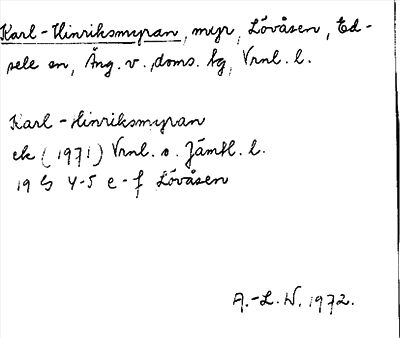 Karl-Hinriksmyran, myr, Lövåsen, Ed-
sele sn, Ång. v. doms. sg, Vrnl. l.
Karl-Hinriksmyran
ek (1971) Vrnl. o. Jämtl. l.
19 G 4-5 e-f Lövåsen
A.-L. W. 1972.